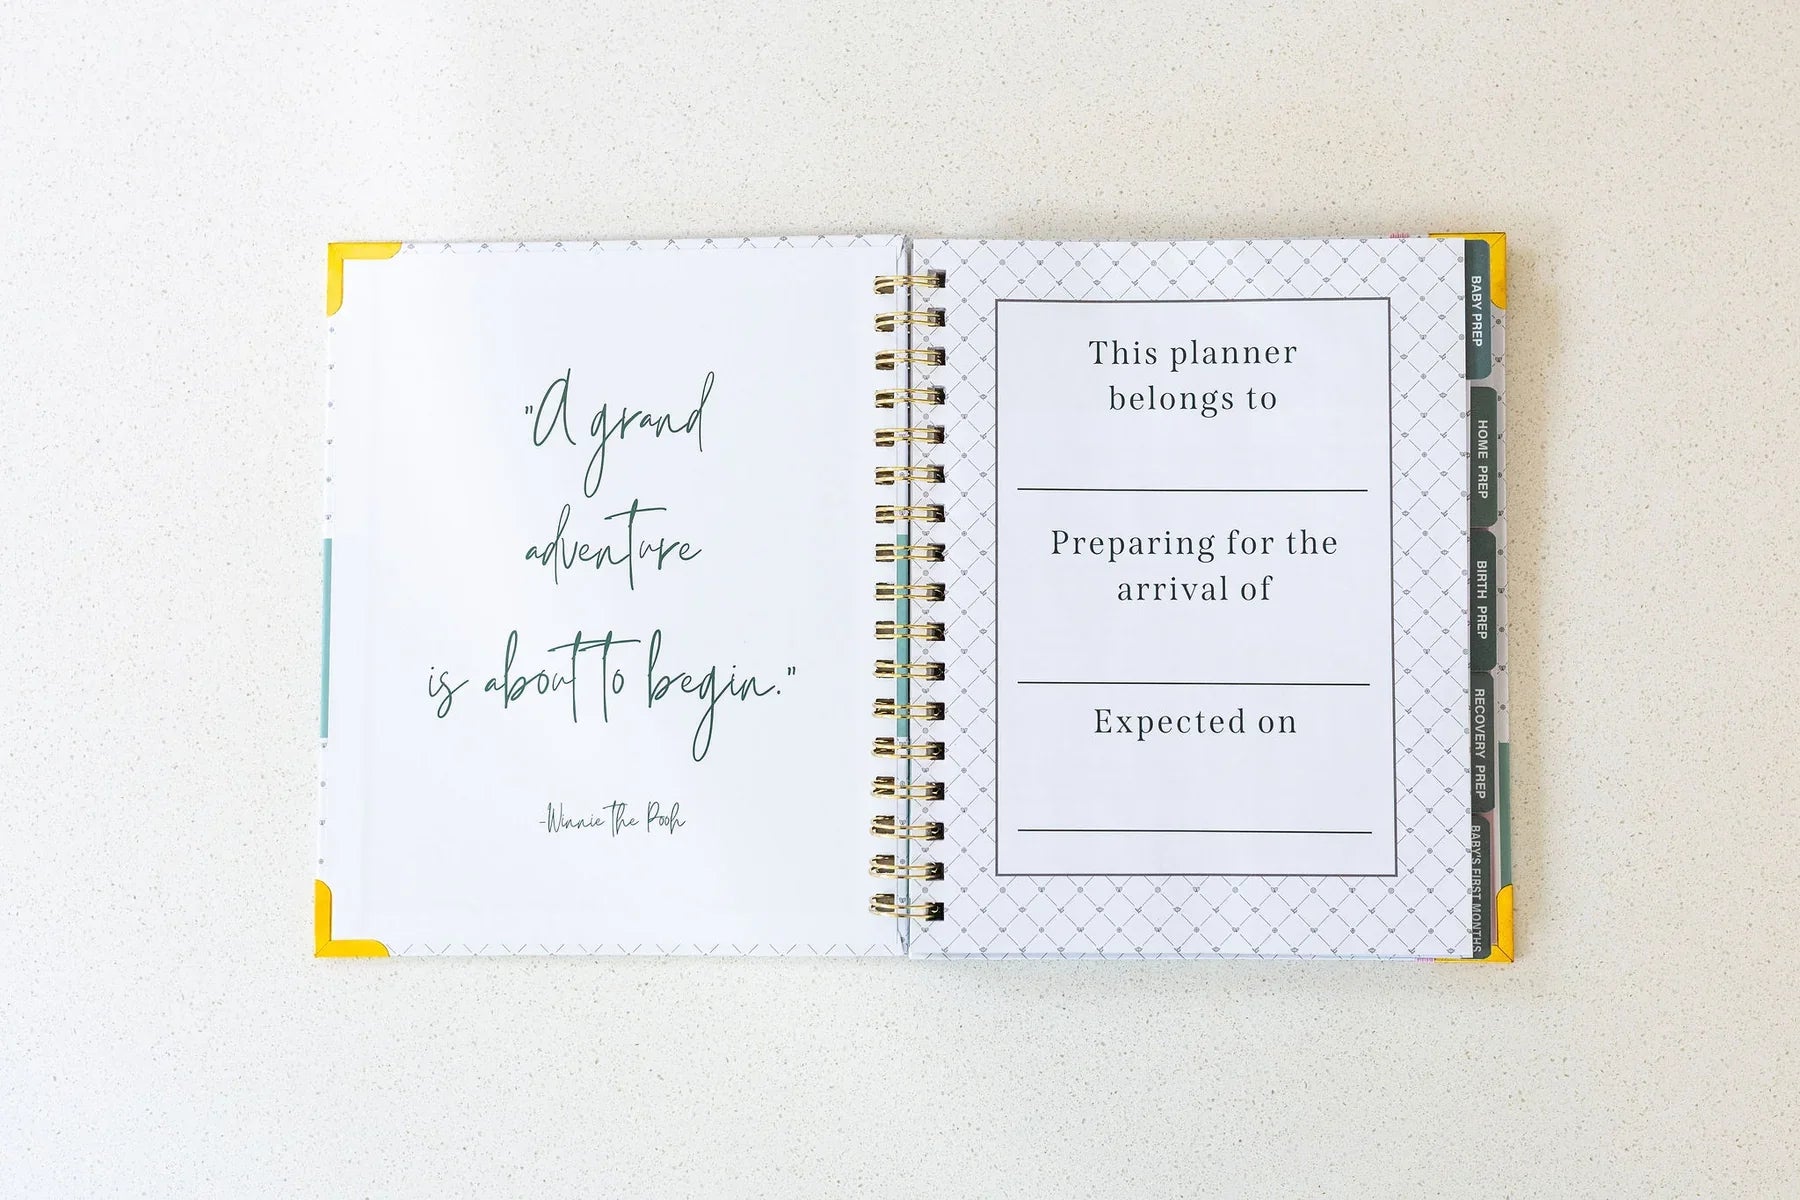 "A grand
adventure
is about to begin."
-Winnie the Pooh
This planner
belongs to
Preparing for the
arrival of
Expected on
BABY PREP
HOME PREP
BIRTH PREP
RECOVERY PREP
BABY'S FIRST MONTHS